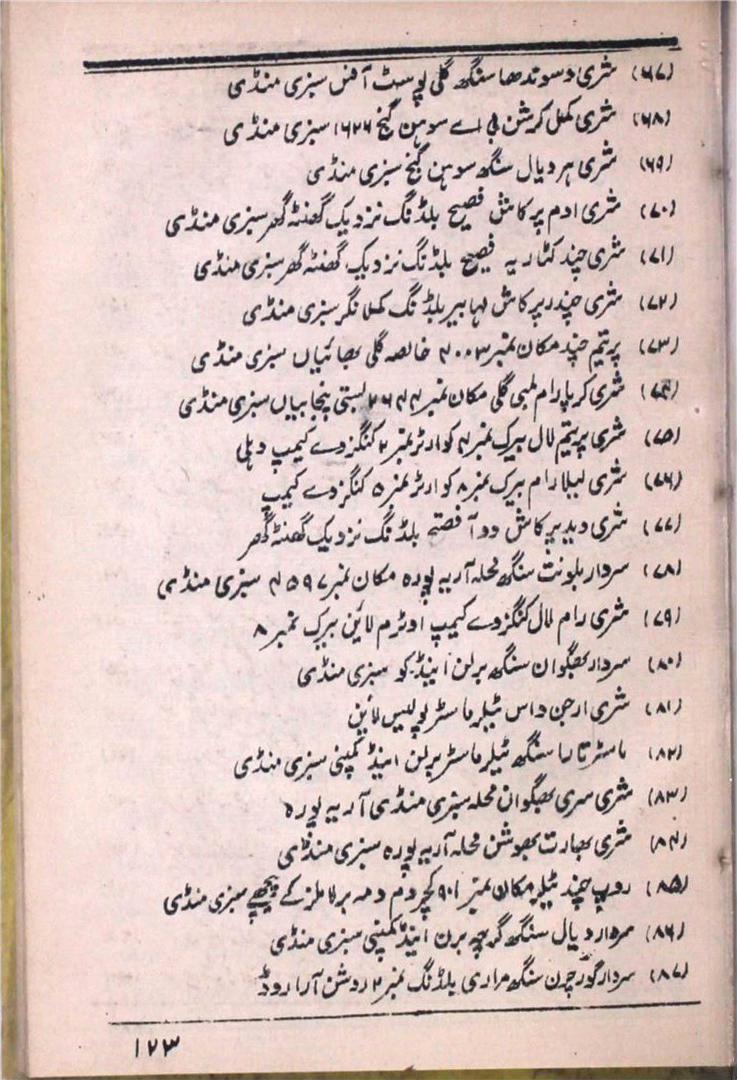 (۶۷) شری دسوندھا سنگھ گلی پوسٹ آفس سبزی منڈی
(۶۸) شری کمل کرشن بی اے سوہن گنج ۱۶۲۶ سبزی منڈی
(۶۹) شری ہر دیال سنگھ سوہن گنج سبزی منڈی
(۷۰) شری اوم پرکاش فصیح بلڈنگ نزدیک گھنٹہ گھر سبزی منڈی
(۷۱) شری چند کٹاریہ فصیح بلڈنگ نزدیک گھنٹہ گھر سبزی منڈی
(۷۲) شری چندر پرکاش مہابیر بلڈنگ کملا نگر سبزی منڈی
(۷۳) پریتم چند مکان نمبر ۴۰۰۳ خالصہ گلی بھائیاں سبزی منڈی
(۷۴) شری کرپا رام لمبی گلی مکان نمبر ۲۶۴۴ بستی پنجابیاں سبزی منڈی
(۷۵) شری پریتم لال بیرک نمبر ۴ کوارٹر نمبر ۲ کنگزوے کیمپ دہلی
(۷۶) شری لیلا رام بیرک نمبر ۸ کوارٹر نمبر ۵ کنگزوے کیمپ
(۷۷) شری وید پرکاش دوآ فصتح بلڈنگ نزدیک گھنٹہ گھر
(۷۸) سردار بلونت سنگھ محلہ آریہ پورہ مکان نمبر ۴۵۹۷ سبزی منڈی
(۷۹) شری رام لال کنگزوے کیمپ اوٹرم لائین بیرک نمبر ۸
(۸۰) سردار بھگوان سنگھ برلن اینڈ کو سبزی منڈی
(۸۱) شری ارجن داس ٹیلر ماسٹر پولیس لائین
(۸۲) ماسٹر تارا سنگھ ٹیلر ماسٹر برلن اینڈ کمپنی سبزی منڈی
(۸۳) شری سری بھگوان محلہ سبزی منڈی آریہ پورہ
(۸۴) شری بھارت بھوشن محلہ آریہ پورہ سبزی منڈی
(۸۵) روپ چند ٹیلر مکان نمبر ۹۰۱ کچر دم دمہ برلا ملز کے پیچھے سبزی منڈی
(۸۶) سردار دیال سنگھ گرچہ برن اینڈ کمپنی سبزی منڈی
(۸۷) سردار گورچرن سنگھ مراری بلڈنگ نمبر ۲ روشن آرا روڈ
۱۲۳